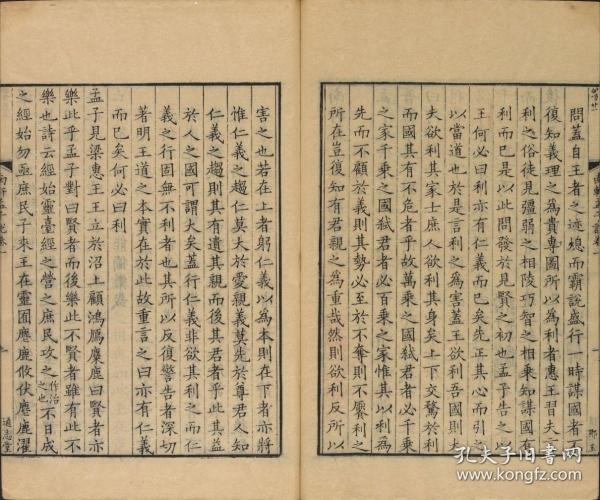 問蓋自王者之迹熄而霸說盛行一時謀國者不
復知義理之為貴專圖所以為利者惠王習夫言
利之俗徒見彊弱之相陵巧智之相乗知謀國有
利而已是以此問發於見賢之初也孟子告之曰
王何必曰利亦有仁義而已矣先正其心而引之
以當道也於是言利之為害蓋王欲利吾國則大
夫欲利其家士庶人欲利其身矣上下交騖於利
而國其有不危者乎故萬乗之國弑君者必千乗
之家千乗之國弑君者必百乗之家惟其以利為
先而不顧於義則其勢必至於不奪則不厭利之
所在豈復知有君親之為重哉然則欲利反所以
害之也若在上者躬仁義以為本則在下者亦將
惟仁義之趨仁莫大於愛親義莫先於尊君人知
仁義之趨則其有遺其親而後其君者乎此其益
於人之國可謂大矣蓋行仁義非欲其利之而仁
義之行固無不利者也其所以反復警告者深切
著明王道之本實在於此故重言之曰亦有仁義
而已矣何必曰利
孟子見梁惠王王立於沼上顧鴻鴈麋鹿曰賢者亦
樂此乎孟子對曰賢者而後樂此不賢者雖有此不
樂也詩云經始靈臺經之營之庶民攻之攻作治之也不日成
之經始勿亟庶民子來王在靈囿麀鹿攸伏麀鹿濯
通志堂
孔夫子旧书网
www.kongfz.com
孔夫子旧书网
www.kongfz.com